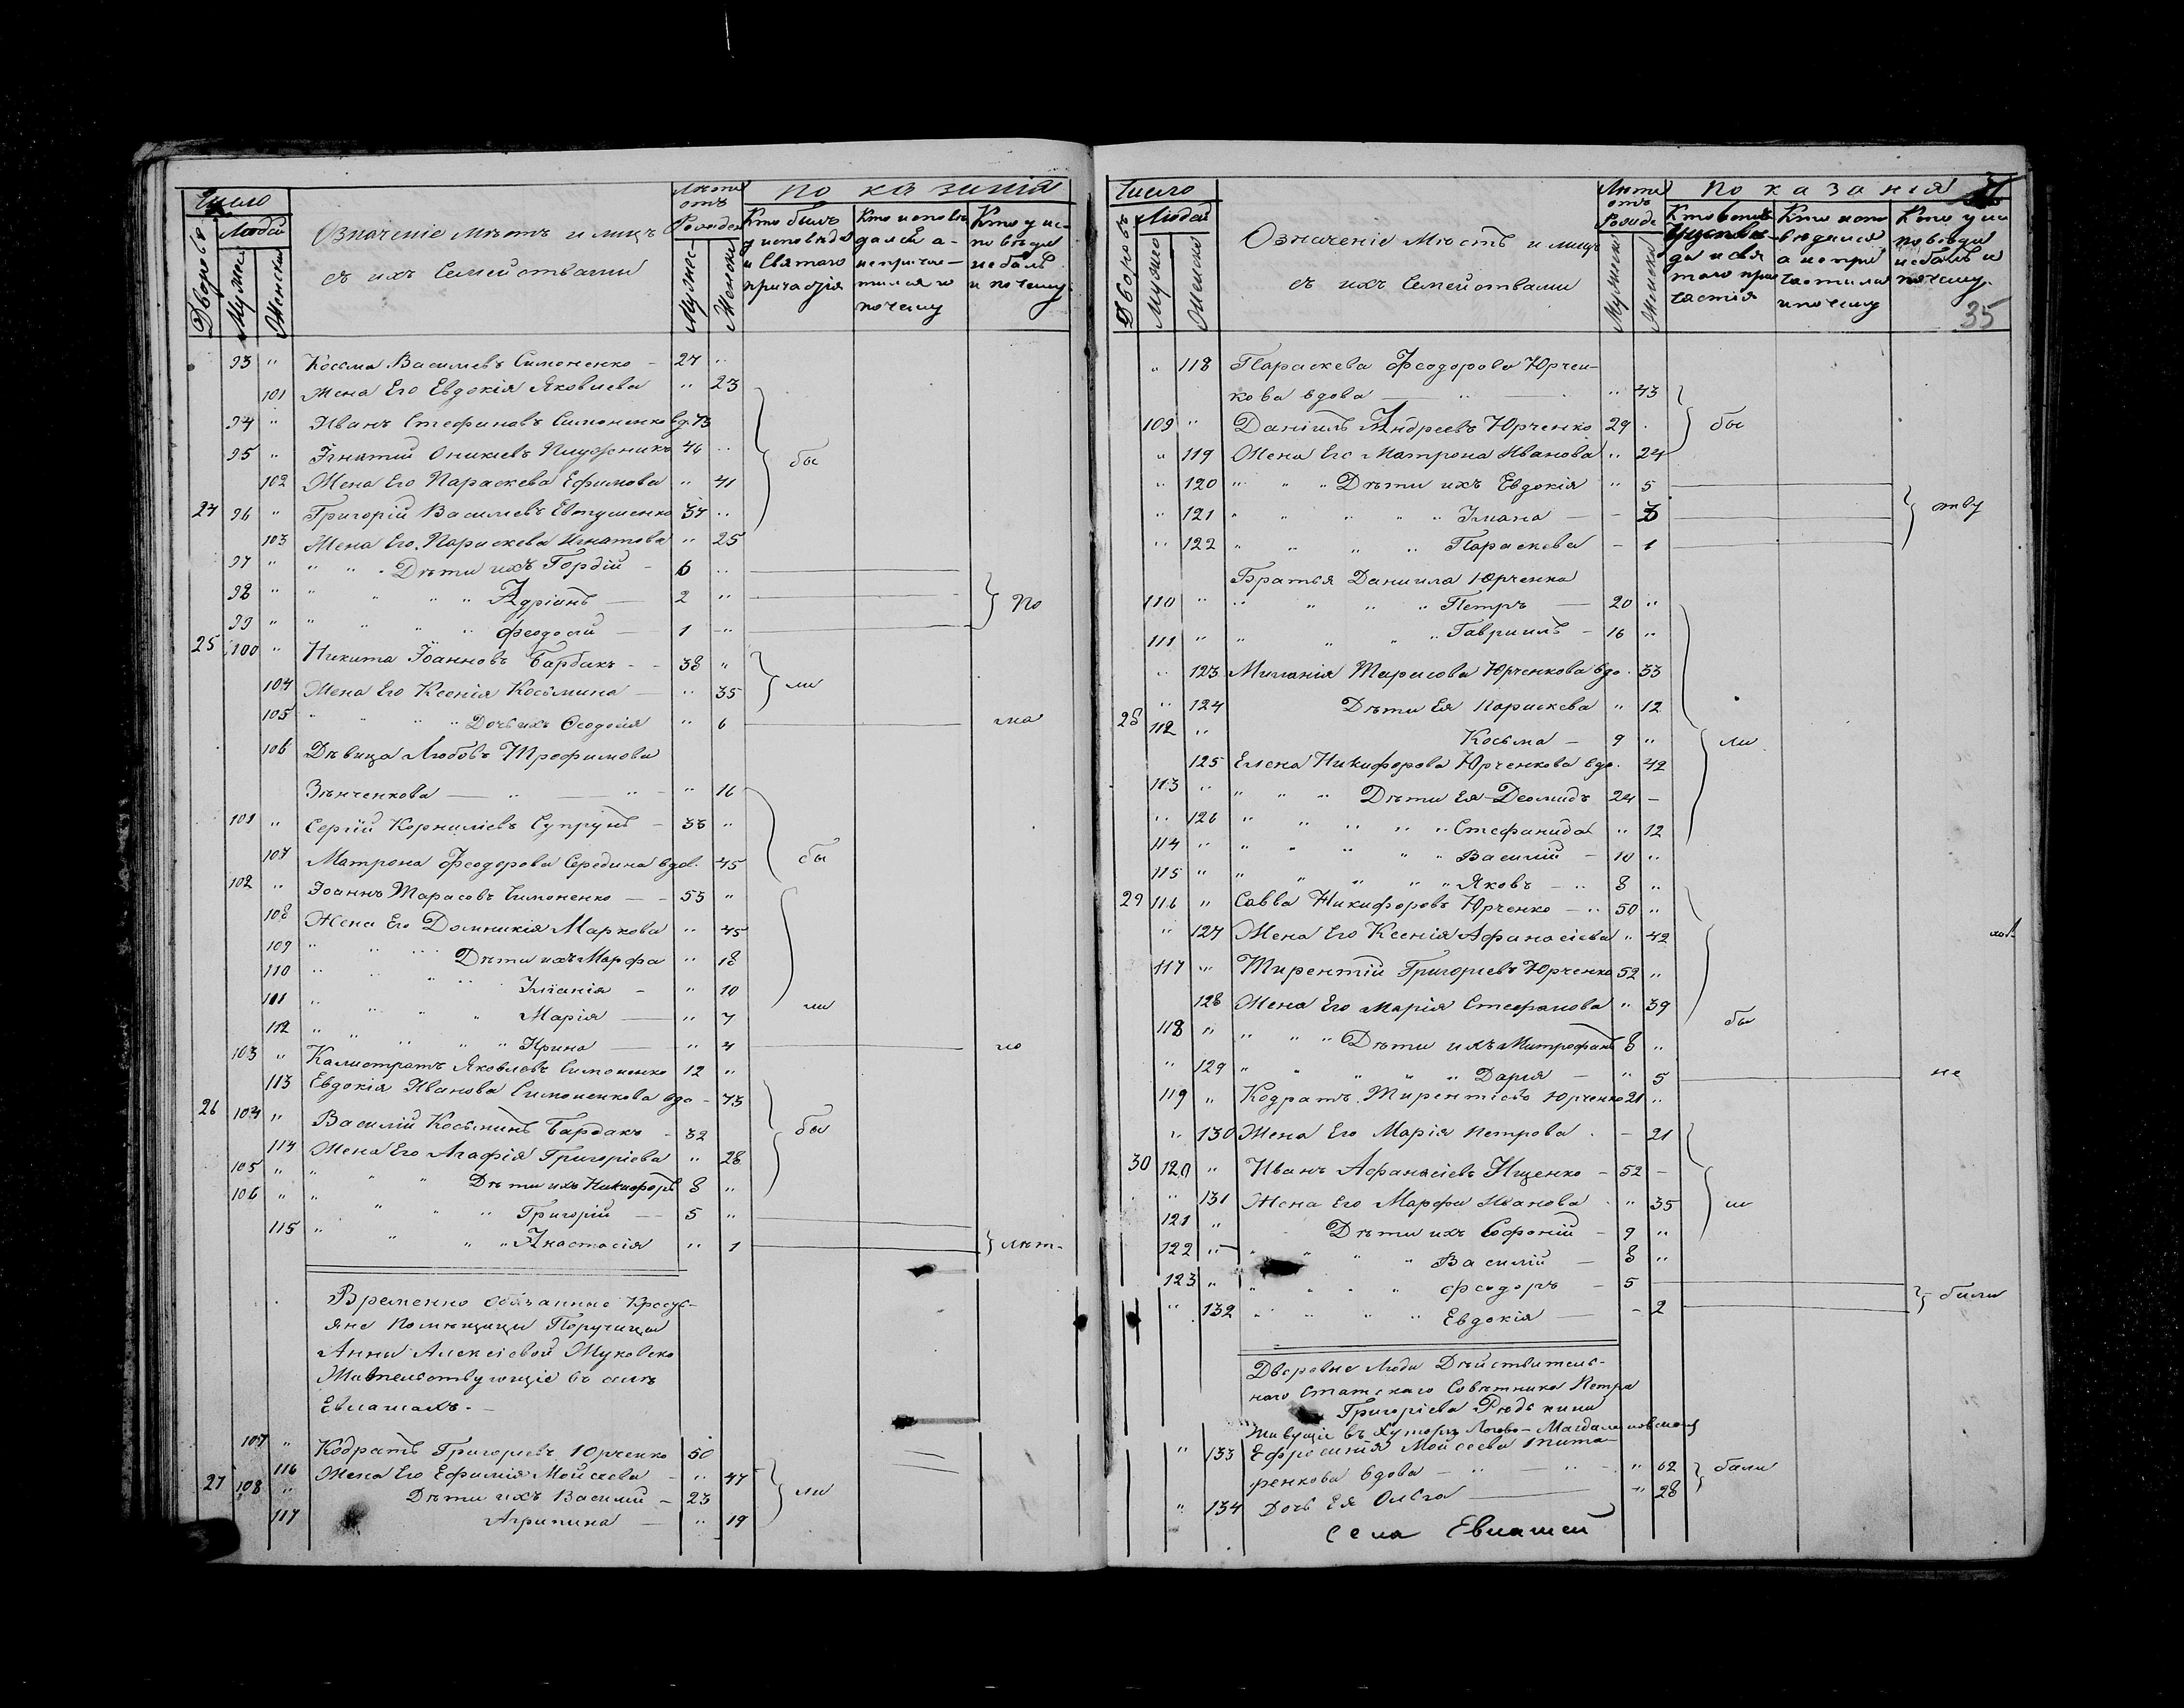 Число
Людей
Дворовъ
Мужес
Женски
Означеніе мѣстъ и лицъ
съ ихъ Семействами
Лѣта
отъ
Рожден
Мужес
Женски
показанія
Кто былъ
у исповѣди
и Святаго
причастія
Кто исповѣ
дался а
непричас-
тился и
почему
Кто у ис-
повѣди
не былъ
и почему
93 " Косьма Василіевъ Симоненко - 27 "
101 Жена Его Евдокія Яковлева " 23
94 " Иванъ Стефановъ Симоненко вд. 73
95 " Игнатій Оникіевъ 46 "
102 Жена Его Параскева Ефимова " 41
бы
24 96 " Григорій Василіевъ Евтушенко 37 "
103 Жена Его Параскева Игнатова " 25
97 " " " Дѣти ихъ Гордій - 6 "
98 " " " " " Адріанъ — 2 "
По
99 " " " " " Феодосій — 1 "
25 100 " Никита Іоанновъ Бардакъ - 38 "
ли
104 Жена Его Ксенія Косьмина — " 35
105 " " " " Дочь ихъ Феодосія " 6
ма
106 Дѣвица Любовь Трофимова
Зѣнченкова — " — " " 16
101 " Сергій Корниліевъ Супрунъ - 33 "
107 Матрона Феодорова Середина вдов. 45
бы
102 " Іоаннъ Тарасовъ Симоненко — 55 "
108 Жена Его Домникія Маркова " 45
109 " " " Дѣти ихъ Марфа " 18
110 " " " " Іуліанія - " 10
111 " " " " Марія — " 7
ли
112 " " " " Ирина — " 4
ло
103 " Калистратъ Яковлевъ Симоненко 12 "
113 Евдокія Иванова Симоненкова вдо - 73
26 104 " Василій Косьминъ Бардакъ - 32
бы
114 Жена Его Агафія Григоріева " 28
105 " " " " Дѣти ихъ Никифоръ 8 "
106 " " " " " Григорій — 5 "
115 " " " " Анастасія " 1
лѣт-
Временно обязанные Кресть-
яне Помѣщицы Поручицы
Анны Алексіевой
Жительствующіе въ селѣ
Евлашахъ.-
107 " Кодратъ Григоріевъ Юрченко 50
116 Жена Его Ефимія Мойсеева - " 47
27 108 " Дѣти ихъ Василій - 23
ли
117 Агрипина — " 19
Число
Людей
Дворовъ
Мужеско
Женско
Означеніе Мѣстъ и лицъ
съ ихъ Семействами
Лѣта
отъ
Рожде
Мужески
Женски
показанія
Кто былъ
у исповѣ-
ди и свя
таго при
частія
Кто испо
вѣдался
а непри
частился
и почему
Кто у ис
повѣди
не былъ и
почему.
35
" 118 Параскева Феодорова Юрчен-
кова вдова — " — " 43
109 " Даніилъ Андреевъ Юрченко 29 "
бы
" 119 Жена Его Матрона Иванова " 24
" 120 " " " Дѣти ихъ Евдокія " 5
" 121 " " " " " — - 3
" 122 " " " " Параскева - 1
Братья Даніила Юрченка
110 " " " " " Петръ — 20 "
111 " " " " Гавріилъ - 16 "
" 123 Миланія Тарасова Юрченкова вдо. 33
" 124 Дѣти Ея Параскева " 12
28 112 " Косьма — 9 "
ли
125 Елена Никифорова Юрченкова вдо. 42
113 " " " " Дѣти Ея Деомидъ 24 -
" 126 " " " " " Стефанида " 12
114 " " " " " " Василій - 10 "
115 " " " " " " Яковъ - " 8 "
29 116 " Савва Никифоровъ Юрченко - " 50 "
" 127 Жена Его Ксенія Афанасіева " 42
117 " Тирентій Григоріевъ Юрченко 52 "
128 Жена Его Марія Стефанова " 39
бы
118 " " " " Дѣти ихъ Митрофанъ 8 "
" 129 " " " " " Дарія — " 5
не
119 " Кодратъ Тирентіевъ Юрченко 21 "
" 130 Жена Его Марія Петрова . - 21
30 120 " Иванъ Афанасіевъ Ищенко - 52 -
" 131 Жена Его Марфа Иванова . " 35
ли
121 " Дѣти ихъ Софоній - 9 "
122 " " " " " Василій — 8 "
123 " " " " " Феодоръ - 5
" 132 " " " " Евдокія — - 2
были
Дворовые Люди Дѣйствитель-
наго Статскаго Совѣтника Петра
Григоріева Рѣдькина
живущіе въ Хуторѣ
" 133 Ефросинія Мойсеева Тита-
ренкова вдова - " - " - " 62
были
" 134 Дочь Ея Ольга — " 28
Села Евлашей